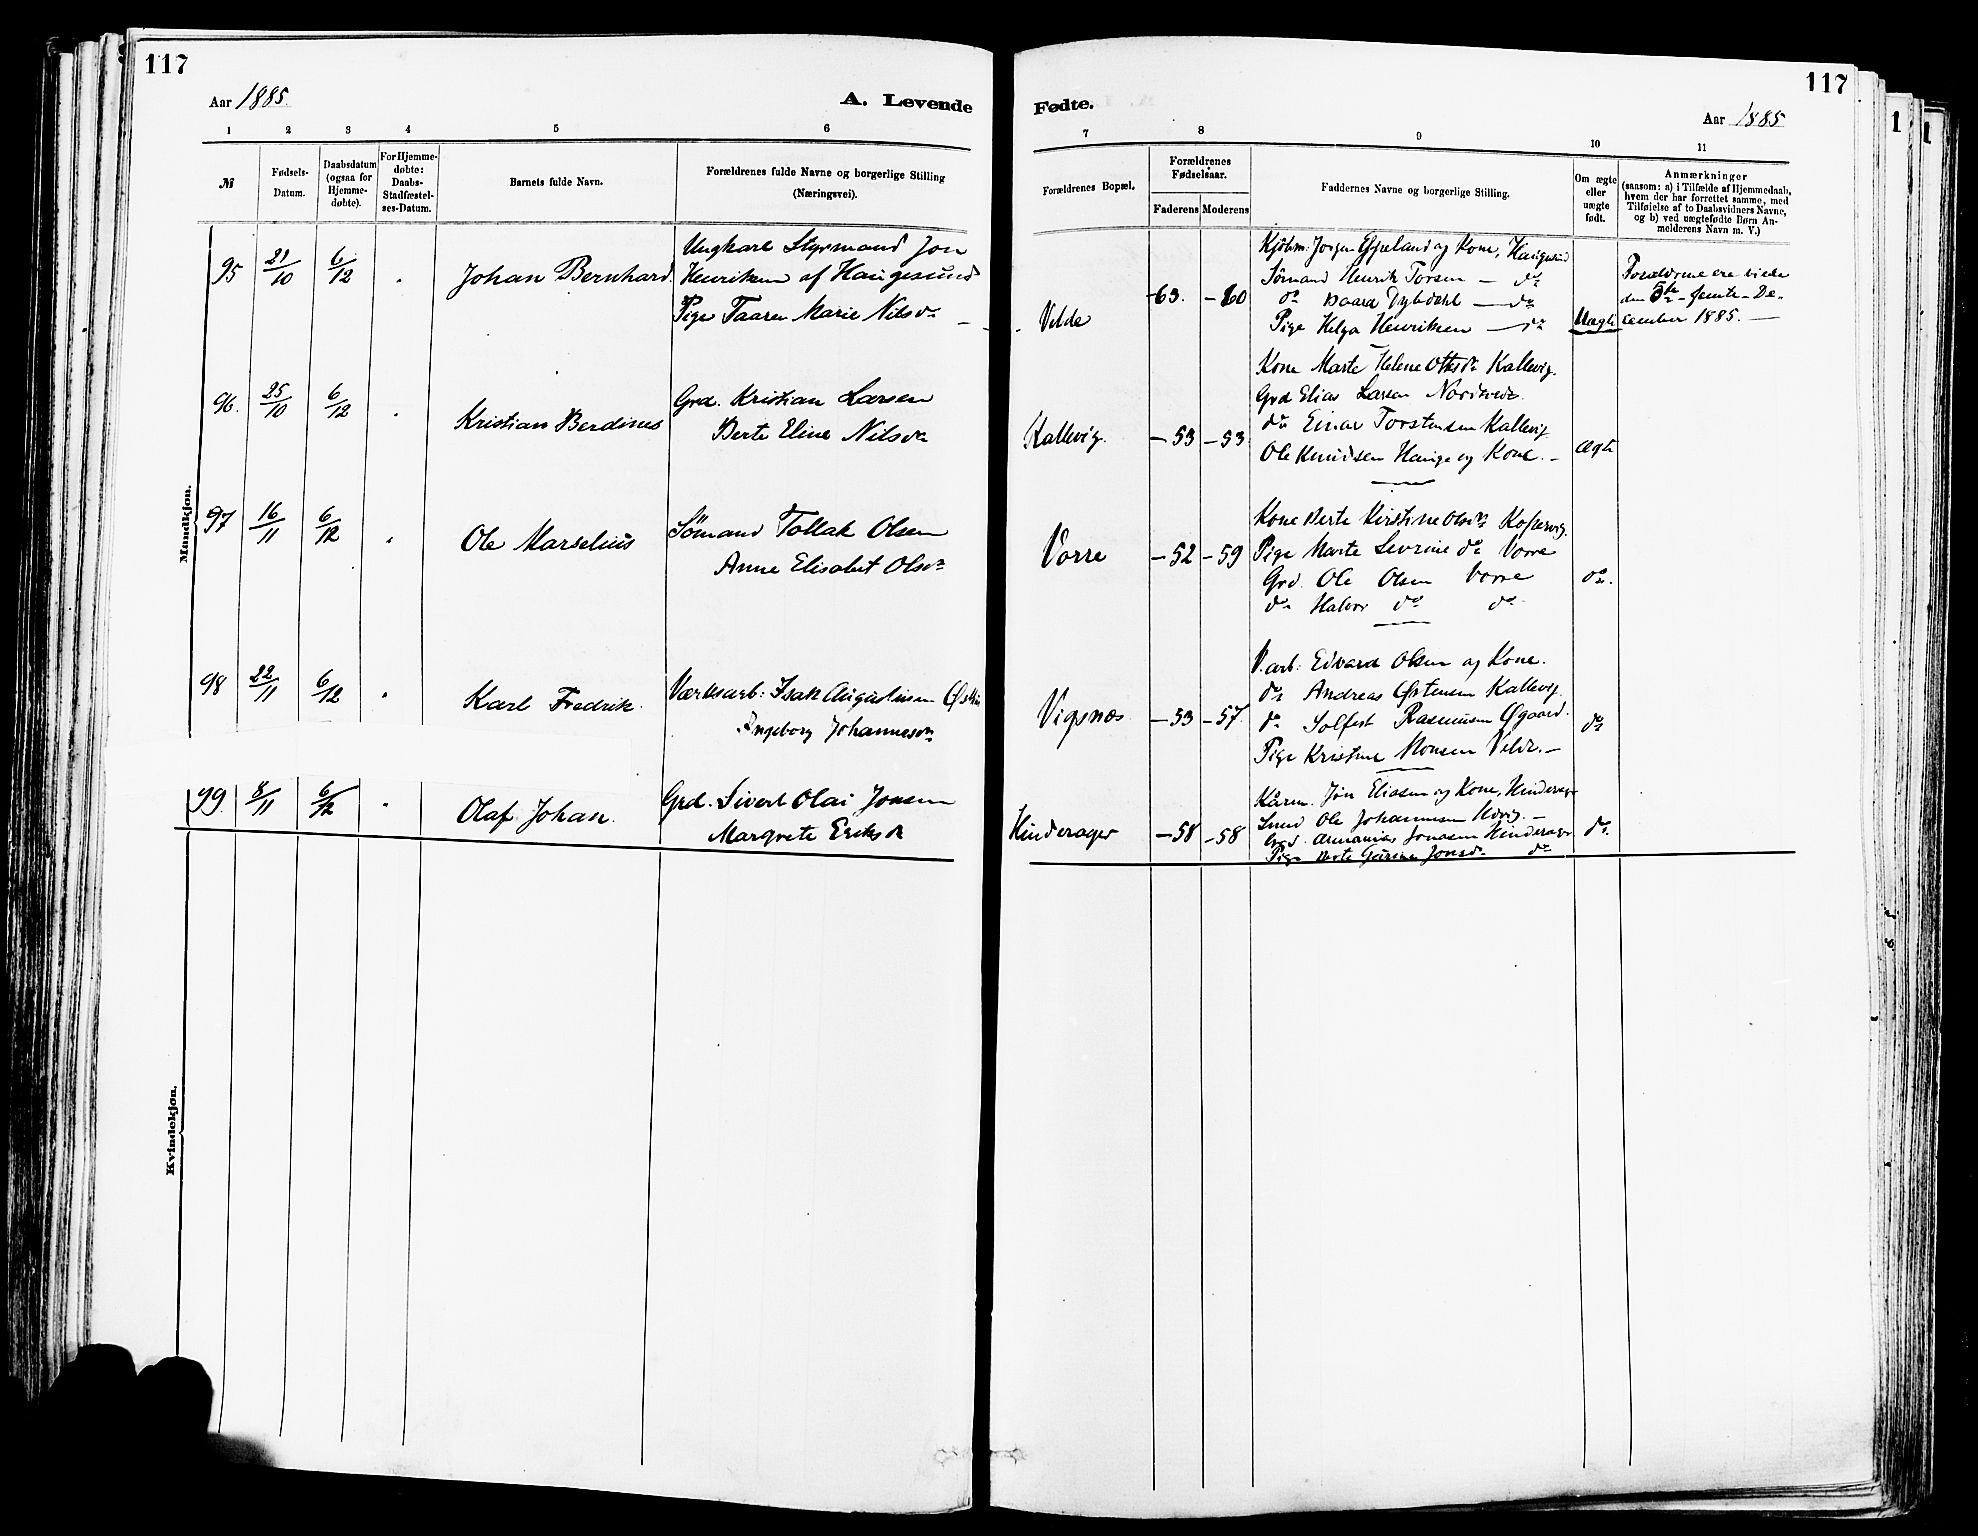 117
117
Aar 1885.
A. Levende
Fødte.
Aar 1885
1 2 3 4 5 6
7 8 9 10 11
№
Fødsels-
Datum.
Daabsdatum
(ogsaa for
Hjemme-
døbte).
For Hjemme-
døbte:
Daabs-
Stadfæstel-
ses-Datum.
Barnets fulde Navn.
Forældrenes fulde Navne og borgerlige Stilling
(Næringsvei).
Forældrenes Bopæl.
Forældrenes
Fødselsaar.
Faderens Moderens
Faddernes Navne og borgerlige Stilling.
Om ægte
eller
uægte
født.
Anmærkninger
(saasom: a) i Tilfælde af Hjemmedaab,
hvem der har forrettet samme, med
Tilføielse af to Daabsvidners Navne,
og b) ved uægtefødte Børn An-
melderens Navn m. V.)
Mandkjøn.
95 21/10 6/12 Johan Bernhard
Ungkarl Styrmand Jon
Henriksen af Haugesund
Pige Taaren Marie Nilsdr
Velde
-63. -60
Kjøbm: Jørgen Eppeland og Kone, Haugesund
Sömand Henrik Torsen — do
do Baard Dybdahl — do
Pige Helga Henriksen — do
Uægte
Forældrene ere viede
den 5te - femte - De-
cember 1885. —
96. 25/10 6/12 Kristian Berdines
Grd. Kristian Larsen
Berte Eline Nilsdr
Kallevig.
-53 -53
Kone Marte Helene Ottesdr Kallevig.
Grd Elias Larsen Nordtveit.
do Einar Torstensen Kallevig
Ole Knudsen Hauge og Kone. -
ægte
97 16/11 6/12 Ole Marselius
Sömand Tollak Olsen
Anne Elisabet Olsdr
Vorre
-52 -59
Kone Berte Kirstine Olsdr Kopervig.
Pige Marte Sevrine do Vorre
Grd. Ole Olsen Vorre
do Halvor do do
do.
98 22/11 6/12 Karl Fredrik.
Værksarb: Isak Augustinsen
Ingeborg Johannesdr
Vigsnæs
-53 -57.
V.arb: Edvard Olsen og Kone.
do Andreas Østensen Kallevig.
do Solfest Rasmusen Øgaard.
Pige Kristine Monsen Velde. -
do
99. 8/11 6/12 Olaf Johan.
Grd. Sivert Olai Jonsen
Margrete Eriksdr
Hinderager
-58 -58
Kårm. Jon Eliassen og Kone, Hinderager
Smed Ole Johannesen
Grd. Annanias Jonasen Hinderager
Pige Berte Gurine Jonsd. do
do.
Kvindekjøn.